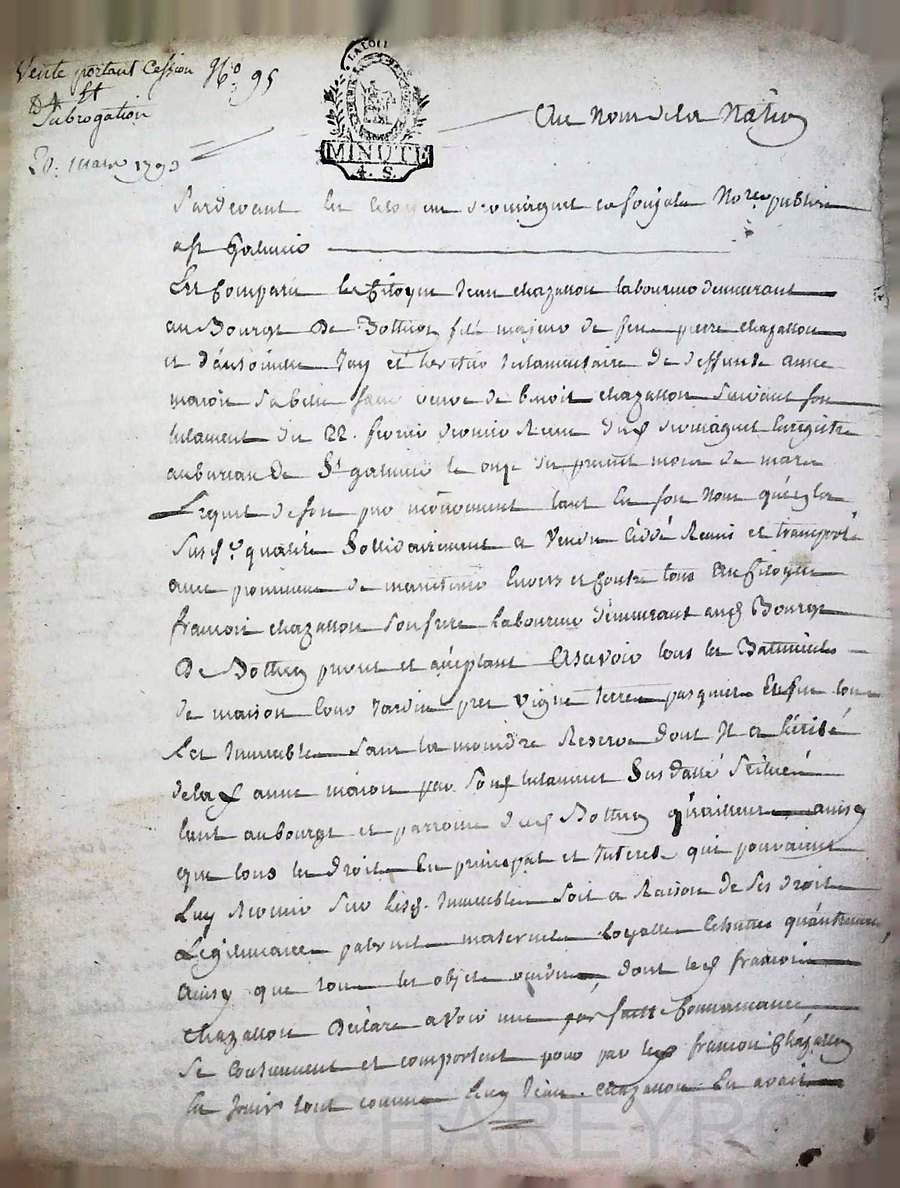 Vente portant Cession N.o 95
&
Subrogation
20. mars 1793
LA LOI
MINUTE
4. S.
Au Nom de la Nation
Pardevant les Citoyens No.re public
Est Comparu le Citoyen Jean chazallon laboureur demeurant
au Bourg De Bothieon fils majeur de feu pierre chazallon
et d'antoinette Jay et heritier testamentaire de deffunte anne
maion veuve de benoit chazallon Suivant son
testament du 22. fevrier dernier Reçu Enregistré
au bureau de St galmier le onze du present mois de mars
Lequel de son gré tant En son Nom qu'en la
Susd.e qualité Sollidairement a Vendu Cédé Remis et transporté
avec promesse de maintenir Envers et Contre tous Au Citoyen
francois chazallon son frere Laboureur demeurant aud Bourg
De present et acceptant Asavoir tous les Batiments
de maison Cour Jardin prez Vigne terres pasquier Et Enfin tous
Les Immeubles Sans la moindre Reserve dont Il a hérité
de lad anne maion par Sond testament Susdatté Situés
tant au bourg et parroisse dud qu'ailleurs ainsy
que tous les droits En principal et Interets qui pouvaient
Luy Revenir Sur lesd. Immeubles Soit a Raison de Ses droits
Légitimaires paternels maternels
Ainsy que tous les objets vendus dont led francois
Chazallon Déclare avoir une parfaitte Connaissance
Se Contiennent et comportent pour par led francois Chazallon
En Jouir tout comme led Jean chazallon En avait
Pascal CHAREYRON